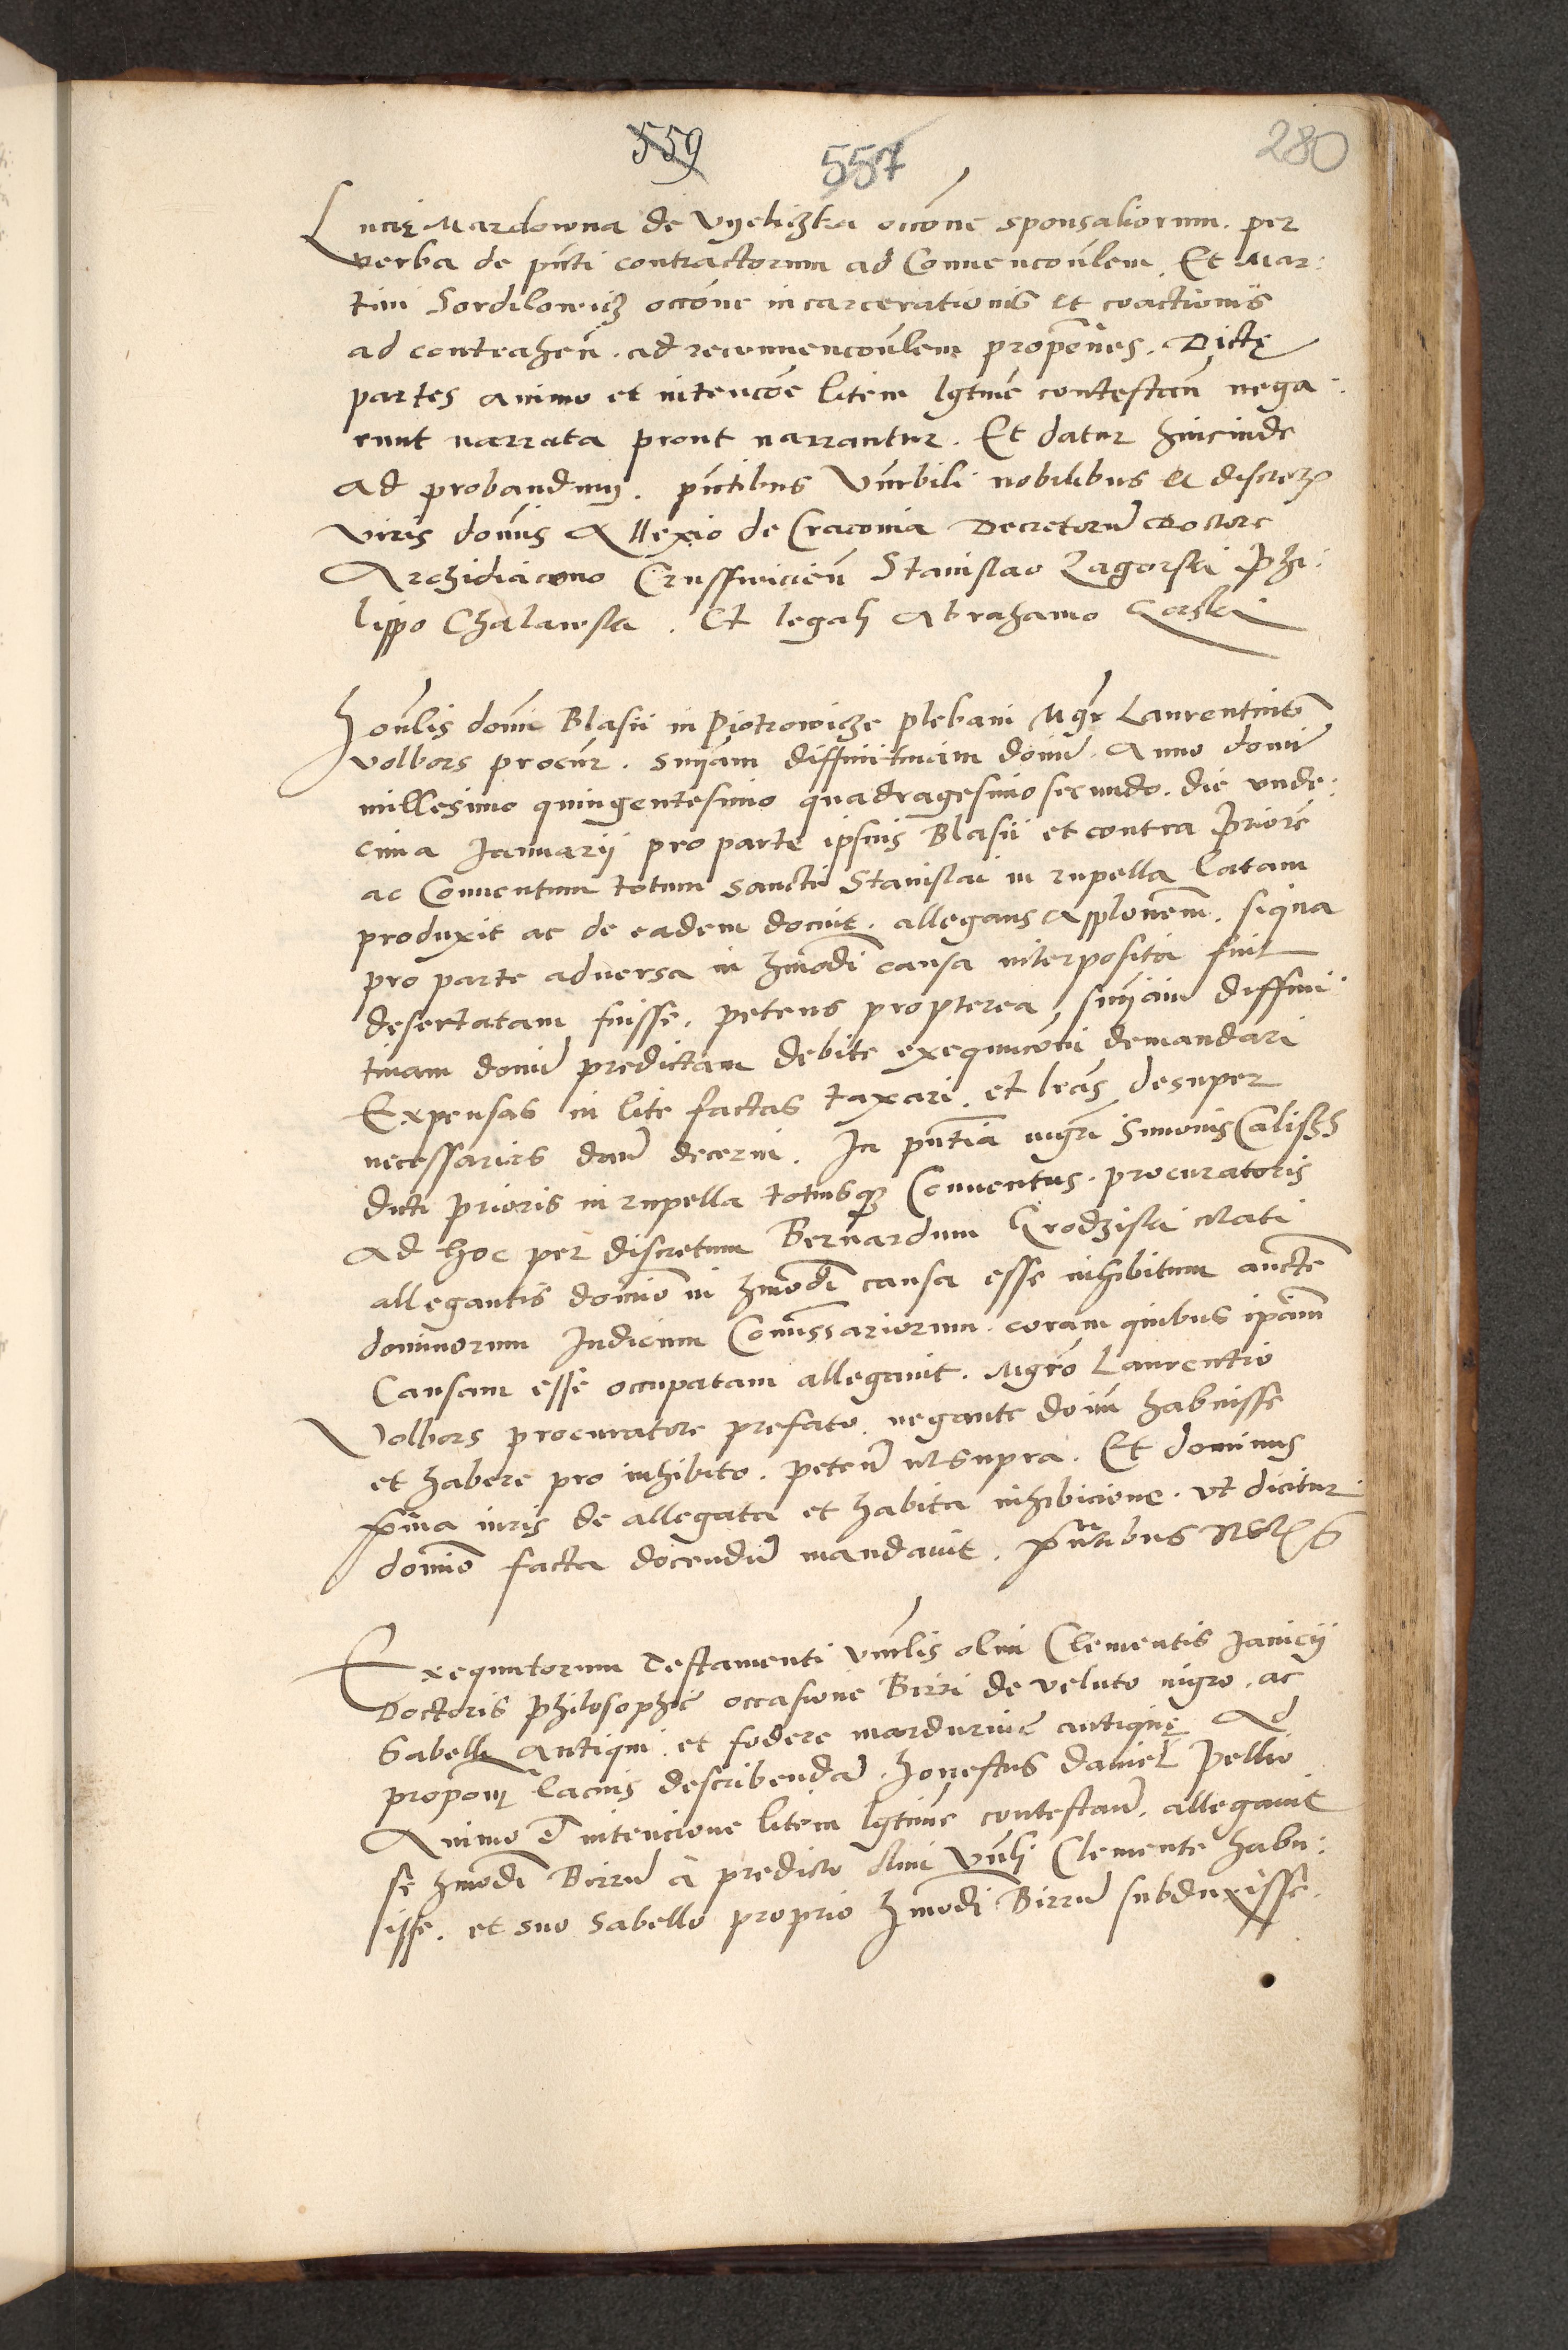 559 557 280
Lucię Mardowna de Vyeliczka occōne sponsaliorum. per
verba de pn̄ti contractorum ad Conuencōnlem. Et Mar:
tini Sordilowicz occōne incarcerationis et coactionis
ad contrahen̄. ad reconuencōnlem propōnes. Dictę
partes animo et intencōe litem lgtime contestan̄ nega:
runt narrata prout narrantur. Et datur hincinde
ad probandum. pn̄tibus Vn̄rbili nobilibus et discret
viris domīs Allexio de Cracouia Decretorum Doctore
Archidiacono Crusswicien̄ Stanislao Zagorski Phi:
lippo Chalawski. Et legali Abrahamo Gorski
Honlis domi Blasii in Piotrowicze plebani Mgr Laurentius
volbors procur. sniam diffinitiuam domi. Anno domi
millesimo quingentesimo quadragesimo secundo. die vnde:
cima Januarij pro parte ipsius Blasii et contra Priore
ac Conuentum totum sancti Stanislai in rupella latam
produxit ac de eadem docuit. allegans applonem. siqua
pro parte aduersa in hmōdi causa interposita fuit
desertatam fuisse. petens propterea sniam diffini
tiuam domi predictam debite exequucōni demandari
Expensas in lite factas taxari. et lras desuper
necessarias dari decerni. In pn̄tia mgri Simonis Calissz
dicti prioris in rupella totiusq; Conuentus. procuratoris
ad hoc per discretum Bernardum Grodziski citati
allegantis domino in hmōdi causa esse inhibitum aucte
dominorum Judicum Comissariorum. coram quibus ipam
Causam esse occupatam allegauit. Mgro Laurentio
Volbors procuratore prefato. negante doim habuisse
et habere pro inhibito. peten̄ vt supra. Et dominus
pma iuris de allegata et habita inhibicione. vt dicitur
domino facta docendum mandauit. pn̄tibus
Exequutorum Testamenti Vnrlis olim Clementis Janicij
Doctoris Philosophie occasione Birri de veluto nigro. ac
Sabelli Antiqui. et fodere mardurine antiquę Ad
propon lacius describendam. Honestus Daniel Pellio
Animo et intencione litem lgtime contestan̄. allegauit
se hmōdi Birrum à predicto olim Vnli Clemente habu:
isse. et suo sabello proprio hmodi Birrum subduxisse.